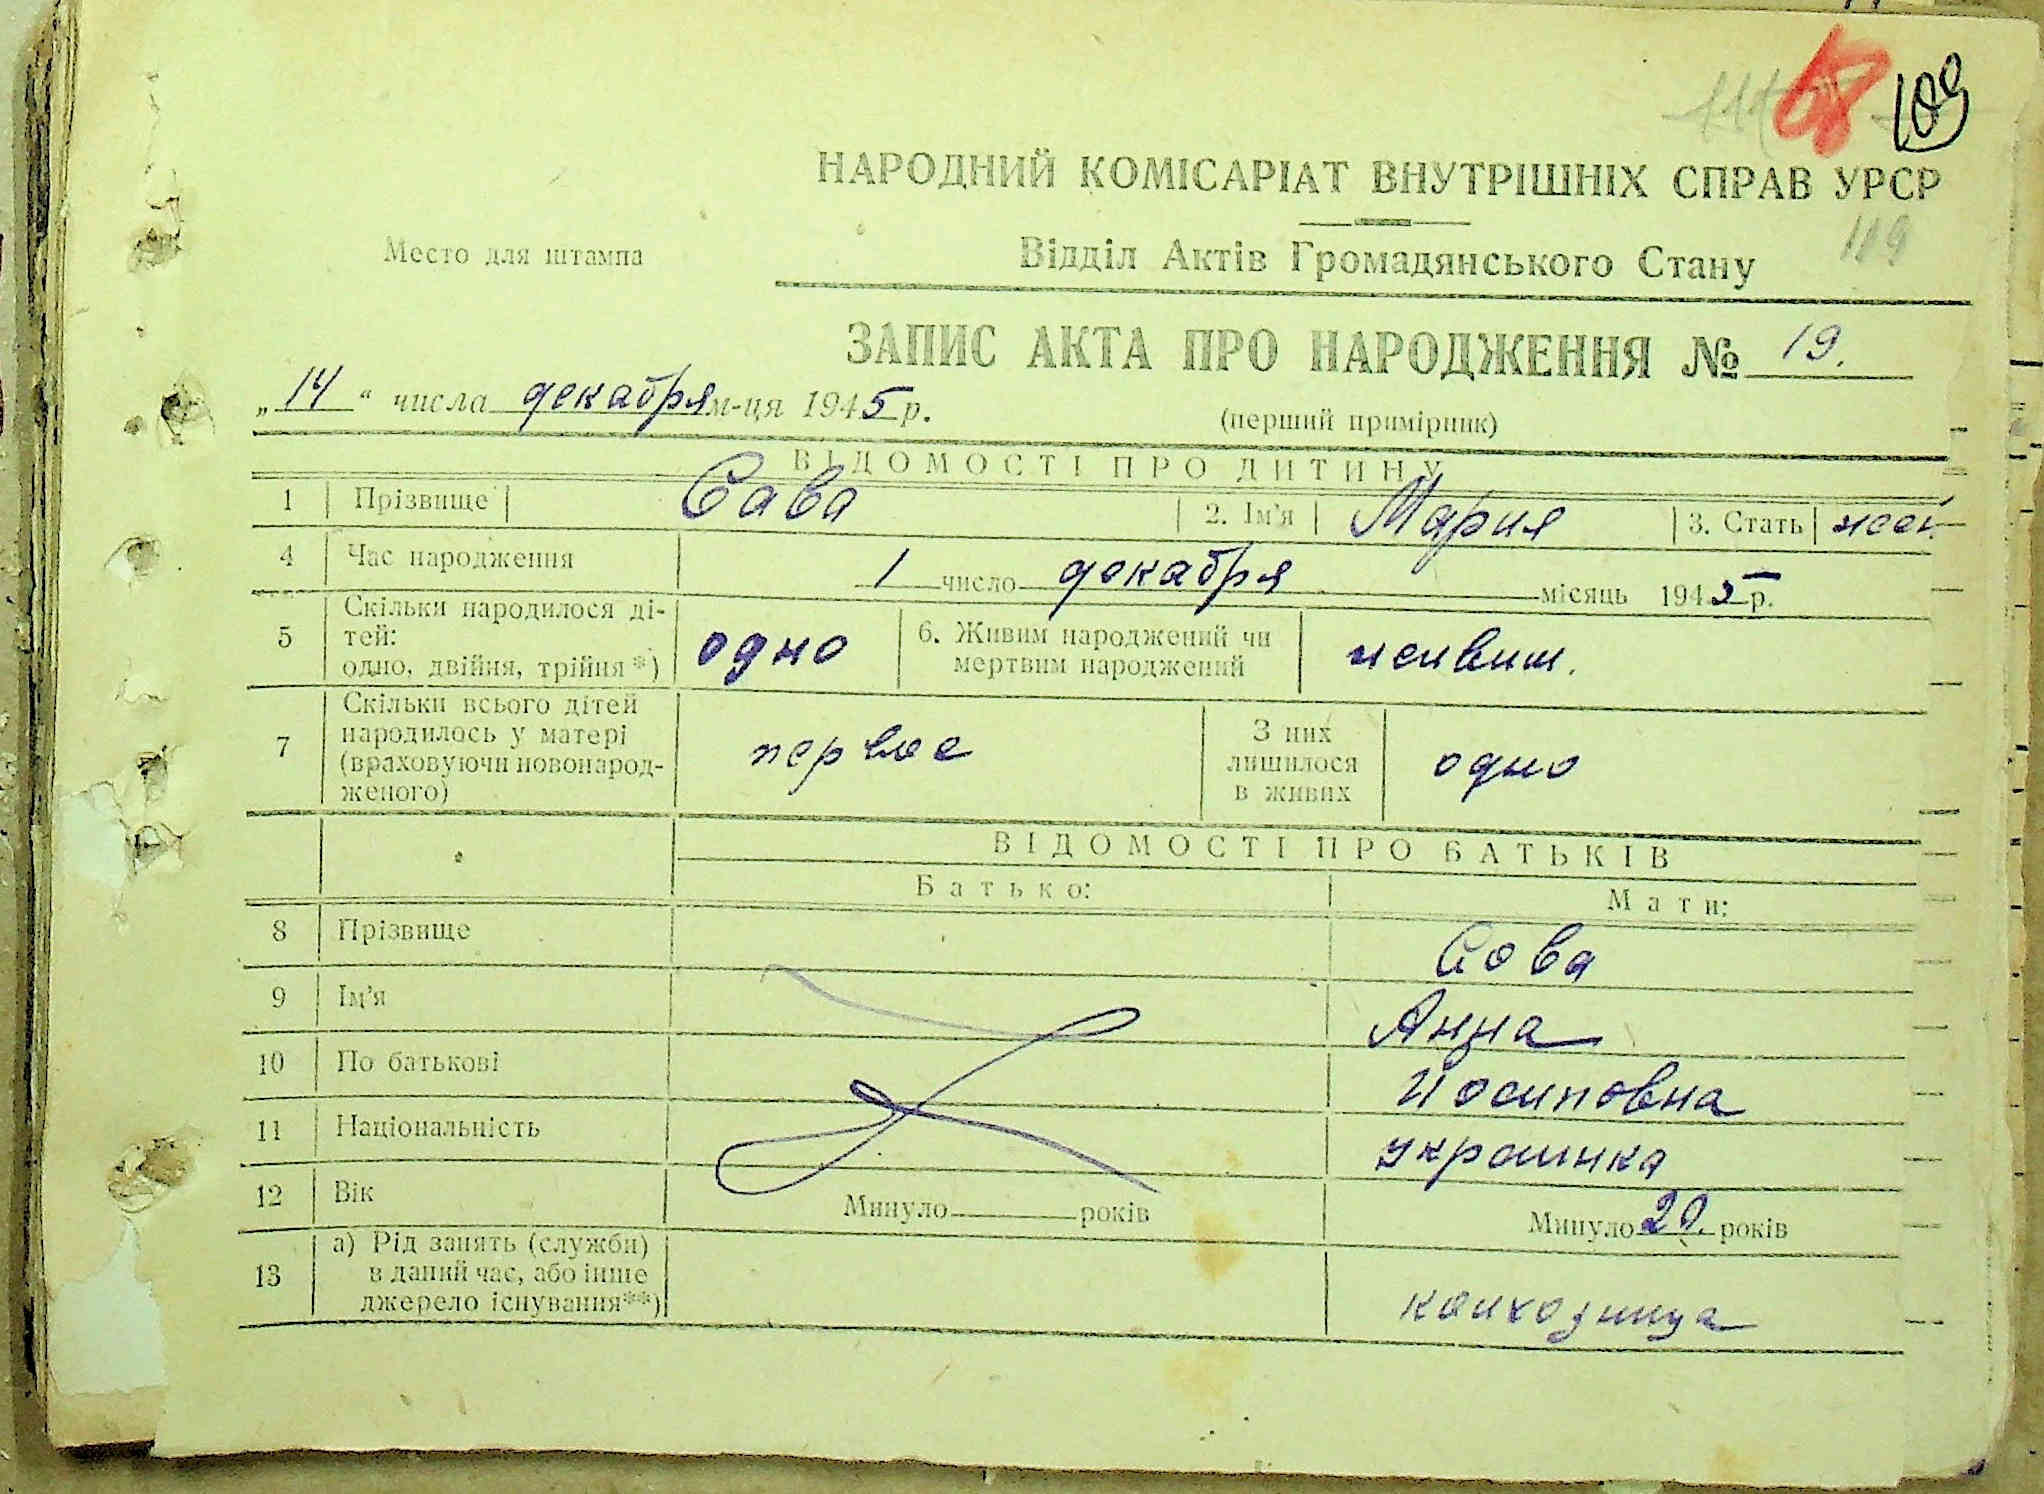 68 109
НАРОДНИЙ КОМІСАРІАТ ВНУТРІШНІХ СПРАВ УРСР
119
Место для штампа
Відділ Актів Громадянського Стану
ЗАПИС АКТА ПРО НАРОДЖЕННЯ № 19.
„14“ числа декабря м-ця 1945 р.
(перший примірник)
ВІДОМОСТІ ПРО ДИТИНУ
1 Прізвище Сава 2. Ім'я Мария 3. Стать жен.
4 Час народження 1 число декабря місяць 1945 р.
5 Скільки народилося ді-
тей:
одно, двійня, трійня *) одно 6. Живим народжений чи
мертвим народжений живым.
7 Скільки всього дітей
народилось у матері
(враховуючи новонарод-
женого) первое З них
лишилося
в живих одно
ВІДОМОСТІ ПРО БАТЬКІВ
Батько: Мати:
8 Прізвище Сова
9 Ім'я Анна
10 По батькові Йосиповна
11 Національність украинка
12 Вік Минуло років Минуло 20. років
13 а) Рід занять (служби)
в даний час, або інше
джерело існування**) колхозница